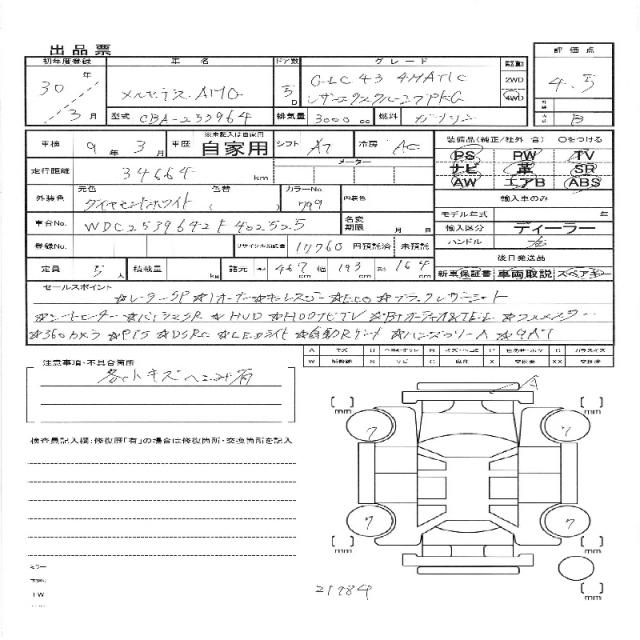 出品票
初年度登録 車名 ドア数 グレード 駆動 評価点
30年 3月 メルセデスAMG 5D GLC 43 4MATIC 2WD 4WD 4.5
レザーエクスクルーシブPKG
型式 CBA-253964 排気量 3000 cc 燃料 ガソリン B
車検 9年 3月 車歴 ※未記入は自家用 自家用 シフト A7 冷房 AC 装備品(純正/社外 含) ○をつける
PS PW TV
走行距離 34664 km メーター ナビ 革 SR
AW エアB ABS
外装色 元色 ダイヤモンドホワイト 色替 カラーNo 799 内装色 輸入車のみ
モデル年式 年
車台No. WDC2539642F402525 名変期限 月 日 輸入区分 ディーラー
登録No. リサイクル預託金 17760 円預託済 未預託 ハンドル 右
後日発送品
定員 5人 積載量 kg 諸元 467 幅 193 高 164 新車保証書 車両取説 スペアキー
セールスポイント
☆レーダーSP☆1オーナー☆キーレスゴー☆ECO☆ブラックレザーシート
☆シートヒーター☆パノラミックSR☆HUD☆HDDナビTV☆Bカメラ
☆360カメラ☆PTS☆DSRC☆LEDライト☆自動Rゲート☆ハンズフリーA☆9AT
注意事項・不具合箇所
各小キズヘコミ有
検査員記入欄:修復歴「有」の場合は修復箇所・交換箇所を記入
A
mm mm
7 7
7 7
mm mm
mm
21984